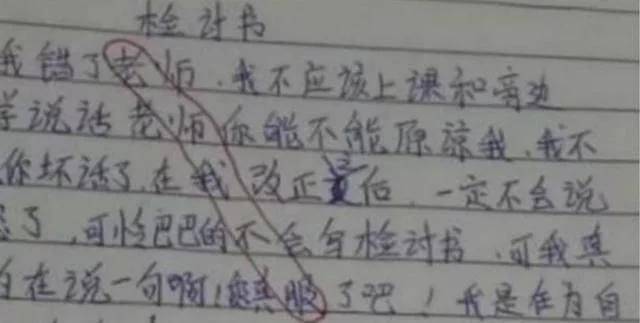 检讨书
我错了老师.我不应该上课和旁边
学说话老师你能不能原谅我.我不
你坏话了.在我改正量后.一定不会说
了,可怜巴巴的不会写检讨书.可我真
在说一句啊!您真服了吧!我是在为自